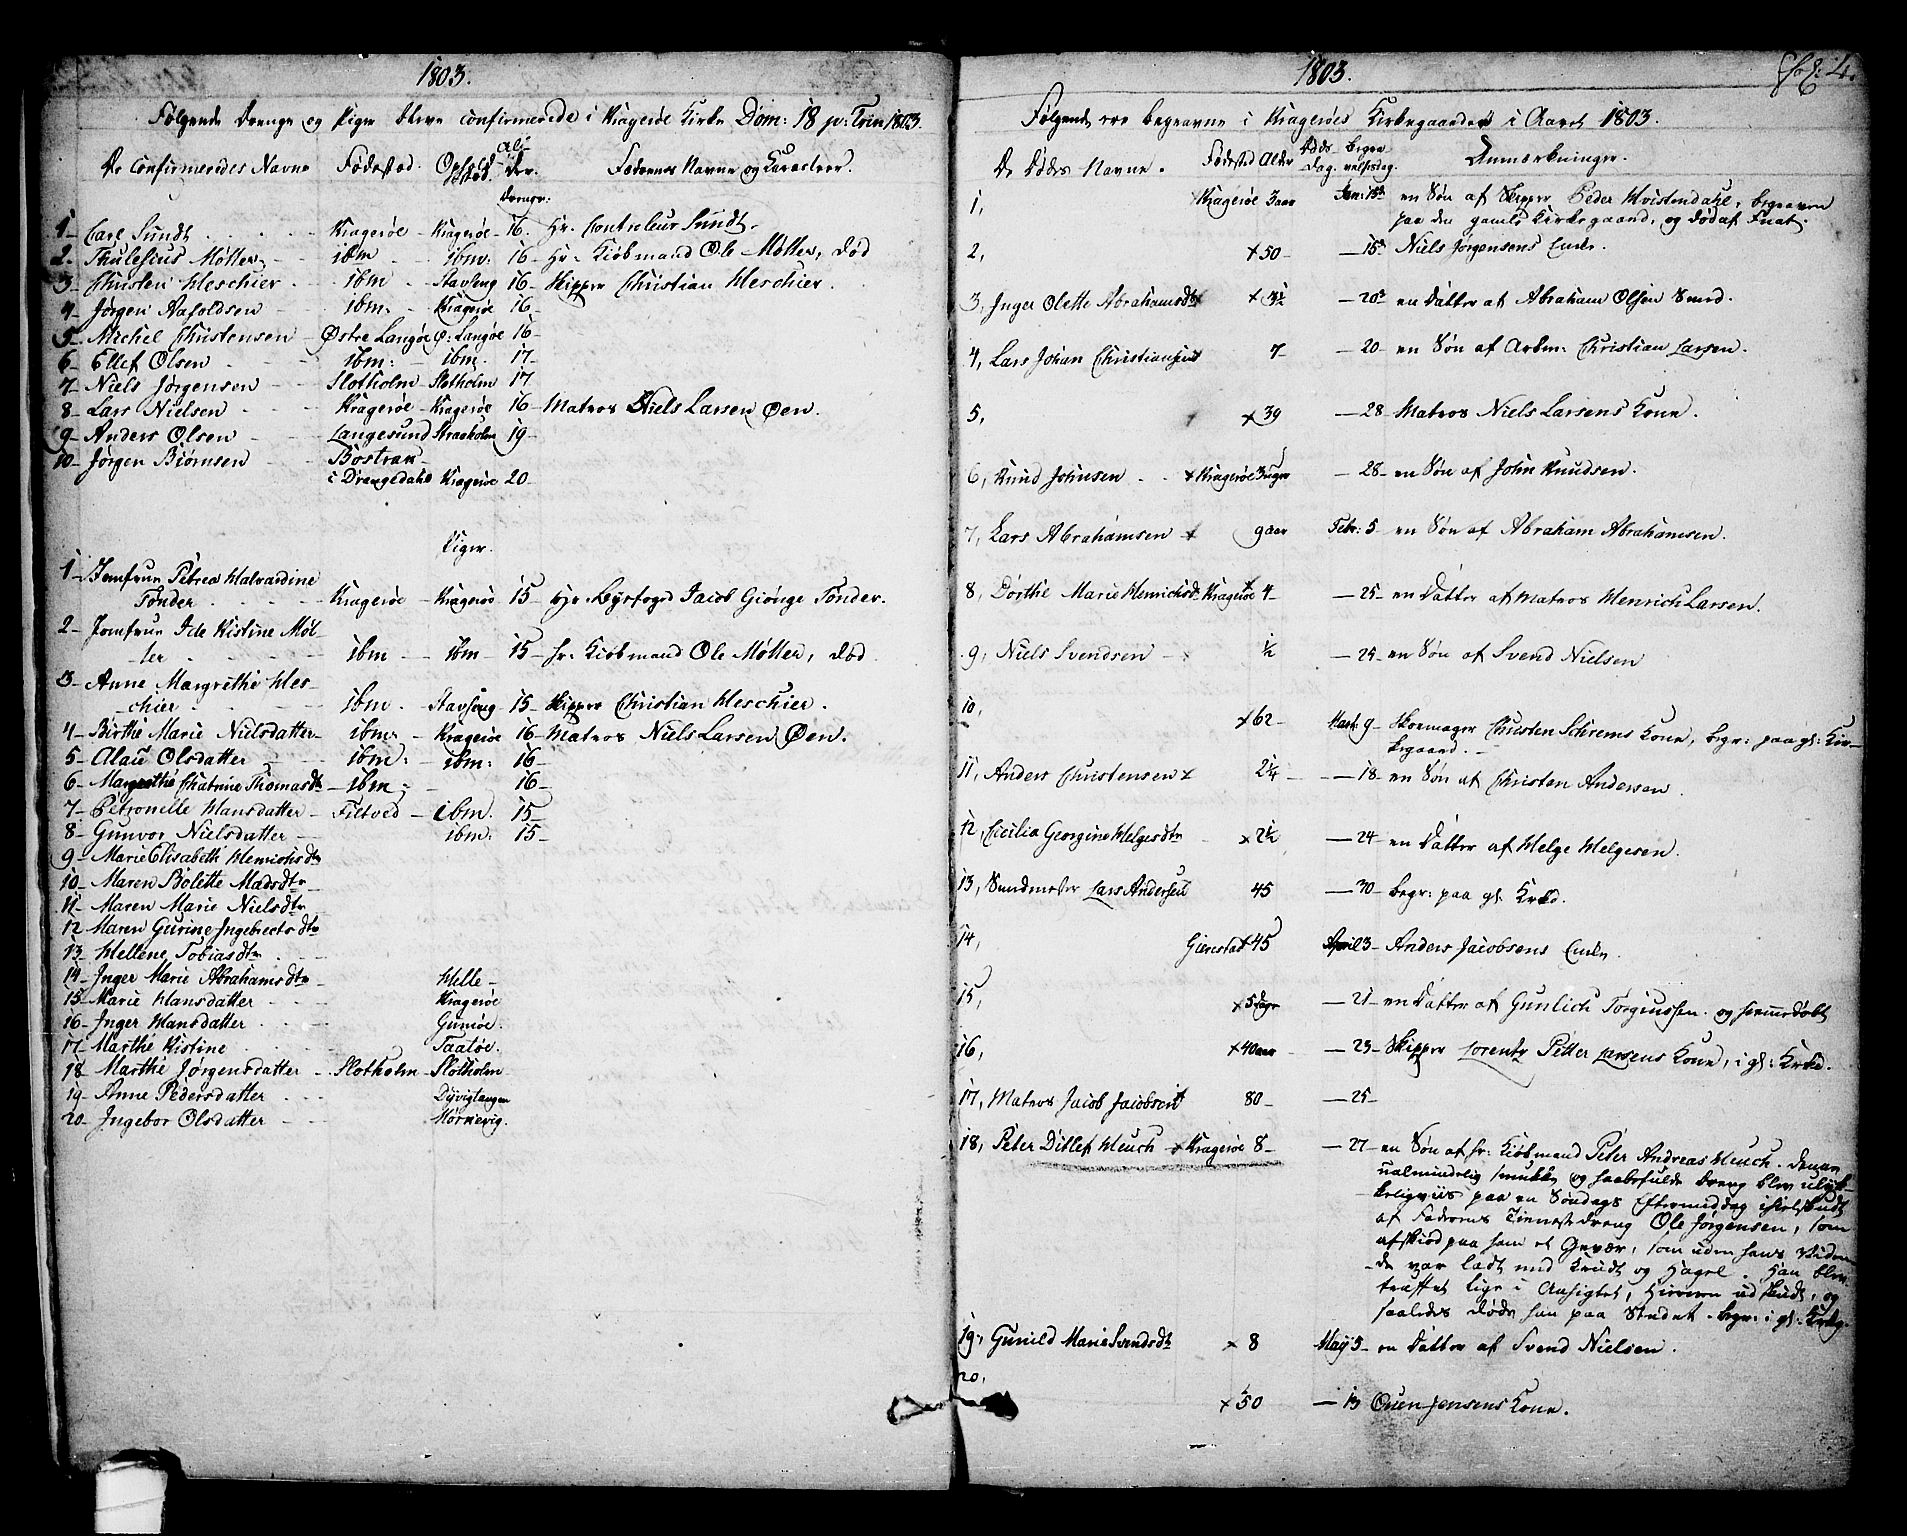 1803.
Følgende Drenge og Piger bleve confirmerede i Kragerøe Kirke Dom: 18 p: Trin 1803.
De confirmeredes Navne Fødested. Opholdsted. Alder. Fædrenes Navne og Caracteer.
Drenge.
1- Carl Sundt Kragerøe - Kragerøe - 16. Hr. Controleur Sundt.
2- Thulesius Møller ibm ibm: 16- Hr: Kiøbmand Ole Møller, død
3- Christen Heschier ibm Stavseng 16- Skipper Christian Heschier.
4- Jørgen Nafoldsen ibm. Kragerøe 16-
5- Michel Christensen Østre Langøe Ø: Langøe 16-
6- Ellef Olsen ibm: ibm. 17-
7- Niels Jørgensen Slotholm Slotholm 17-
8- Lars Nielsen Kragerøe - Kragerøe 16- Matros Niels Larsen Øen.
9- Anders Olsen Langesund Straaholm 19-
10- Jørgen Biørnsen Bostrak
i Drangedahl Kragerøe 20-
Piger.
1- Jomfrue Petrea Halvardine
Tønder Kragerøe - Kragerøe 15- Hr. Byefoged Jacob Giønge Tønder.
2- Jomfrue Ide Kistine Møl-
ler ibm ibm 15- hr: Kiøbmand Ole Møller, død
3- Anne Margrethe Hes-
chier ibm Stavseng 15- Skipper Christian Heschier.
4- Birthe Marie Nielsdatter ibm. Kragerøe 16- Matros Niels Larsen Øen.
5- Alau Olsdatter ibm: ibm: 16-
6- Margrethe Chatrine Thomasdt ibm: 16-
7- Petronelle Hansdatter - Filtved - ibm. 15-
8- Gunvor Nielsdatter ibm: 15-
9- Marie Elisabeth Henrichsdtr
10- Maren Bolette Madsdtr
11- Maren Marie Nielsdtr
12 Maren Gurine Ingebrectsdtr
13- Hellene Tobiasdtr
14- Inger Marie Abrahamsdtr Helle-
15- Marie Hansdatter Kragerøe
16- Inger Hansdatter Gumøe.
17- Marthe Kistine Taatøe.
18 Marthe Jørgensdatter - Slotholm - Slotholm-
19- Anne Pedersdatter Dyvigtangen
20- Ingebor Olsdatter Hørnevig.
1803. Fol: 4.
Følgende ere begravne i Kragerøes Kirkegaarder i Aaret 1803.
De Dødes Navne. Fødested Alder Døds Dag. begravelsesdag. Anmærkninger.
1, Kragerøe 3 aar Jan: 15de en Søn af Skipper Peder Hvistendahl, begraven
paa den gamle Kirkegaard, og død af Fnat.
2, 50- 15de Niels Jørgensens Enke.
3, Inger Olette Abrahamsdt 3½ 20de en Datter af Abraham Olsen Smed.
4, Lars Johan Christiansen 7- 20- en Søn af Arbm: Christian Larsen.
5, 39 28- Matros Niels Larsens Kone.
6, Knud Johnsen Kragerøe 3 uger 28- en Søn af John Knudsen.
7, Lars Abrahamsen 9 aar Febr: 5 en Søn af Abraham Abrahamsen.
8, Dorthe Marie Henrichsdt Kragerøe 4- 25- en Datter af Matros Henrich Larsen.
9, Niels Svendsen ½ 25- en Søn af Svend Nielsen
10, 62- Mart. 9- Skoemager Christen Schrems Kone, begr: paa gl: Kir-
kegaard.
11, Anders Christensen 2¼ 18- en Søn af Christen Andersen.
12, Cicilia Georgine Helgesdtr 2½ 24- en Datter af Helge Helgesen.
13, Lars Andersen 45 30- begr: paa gl: Krkd.
14, Gierestad 45 April 3- Anders Jacobsens Enke.
15, 5 Dage 21- en Datter af Gunlich Torgiussen. og hiemmedøbt
16, 40 aar 23- Skipper Lorentz Petter Larsens Kone, i gl: Krkd.
17, Matros Jacob Jacobsen 80- 25-
18, Peter Ditlef Heuch Kragerøe 8- 27- en Søn af hr: Kiøbmand Peter Andreas Heuch. denne
ualmindelig smukke og haabefulde Dreng blev ulyk-
keligviis paa en Søndags Eftermiddag ihielskudt
af Faderens Tienestedreng Ole Jørgensen, som
afskiød paa ham et Gevær, som uden hans Viden-
de var ladt med Krudt og Hagel. Han blev
truffet lige i Ansigtet, Hiernen udskudt, og
saaledes døde han paa Stedet. begr: i gl: Krkg.
19, Gunild Marie Svendsdt 8 May 5- en Datter af Svend Nielsen.
20,
50 13 Ouen Jensens Kone.